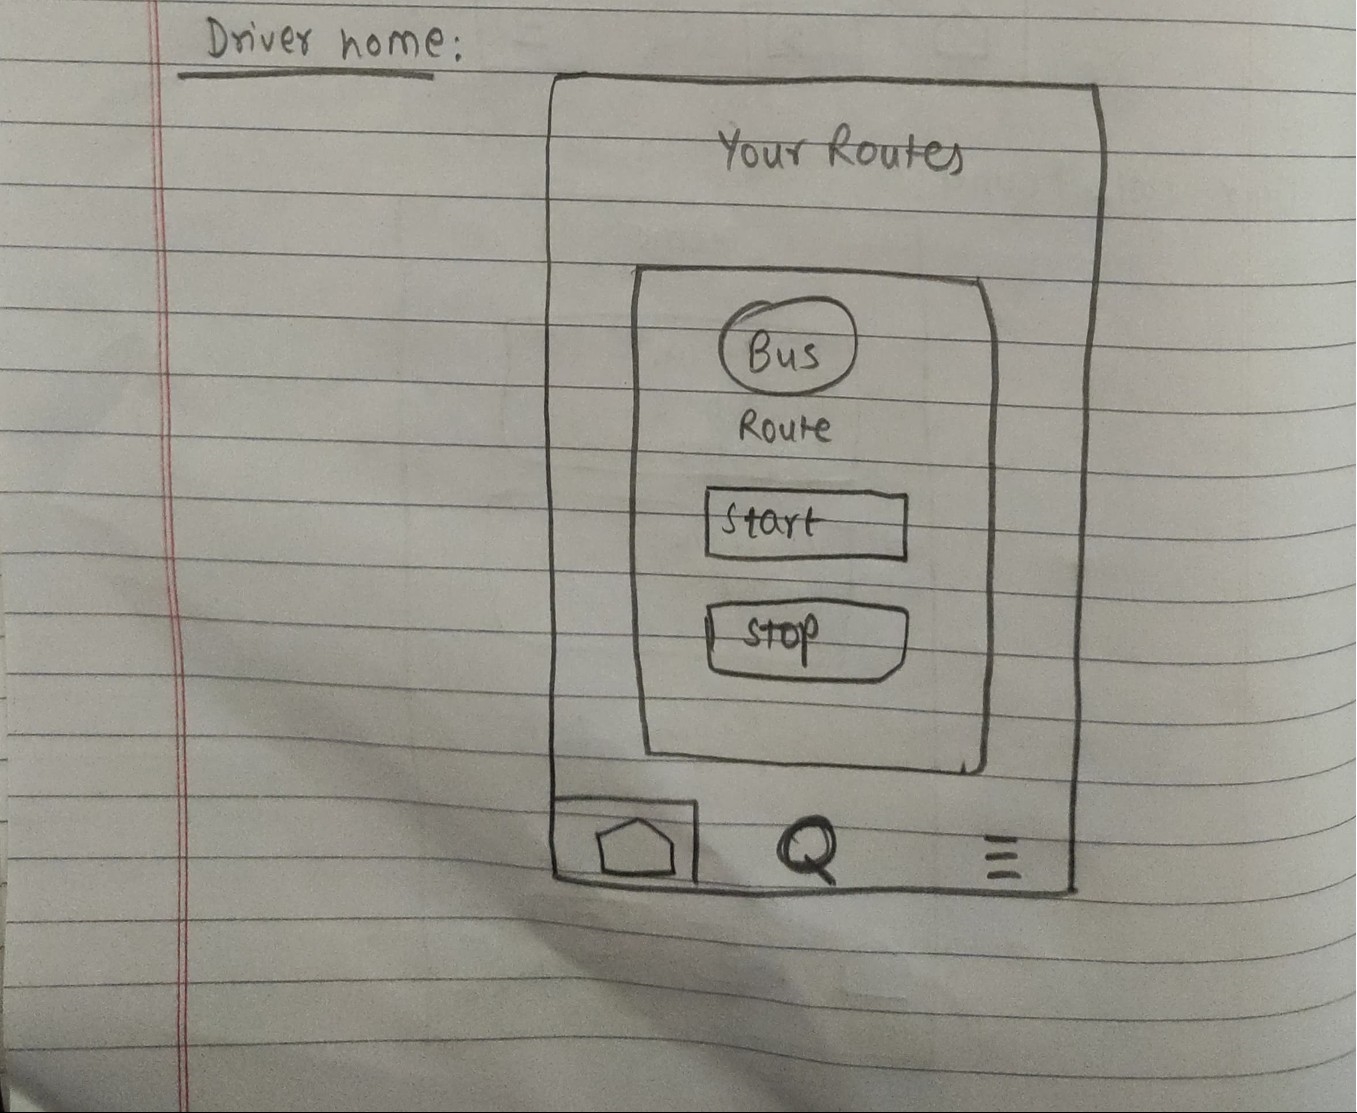 Driver home:
Your Routes
Bus
Route
Start
Stop